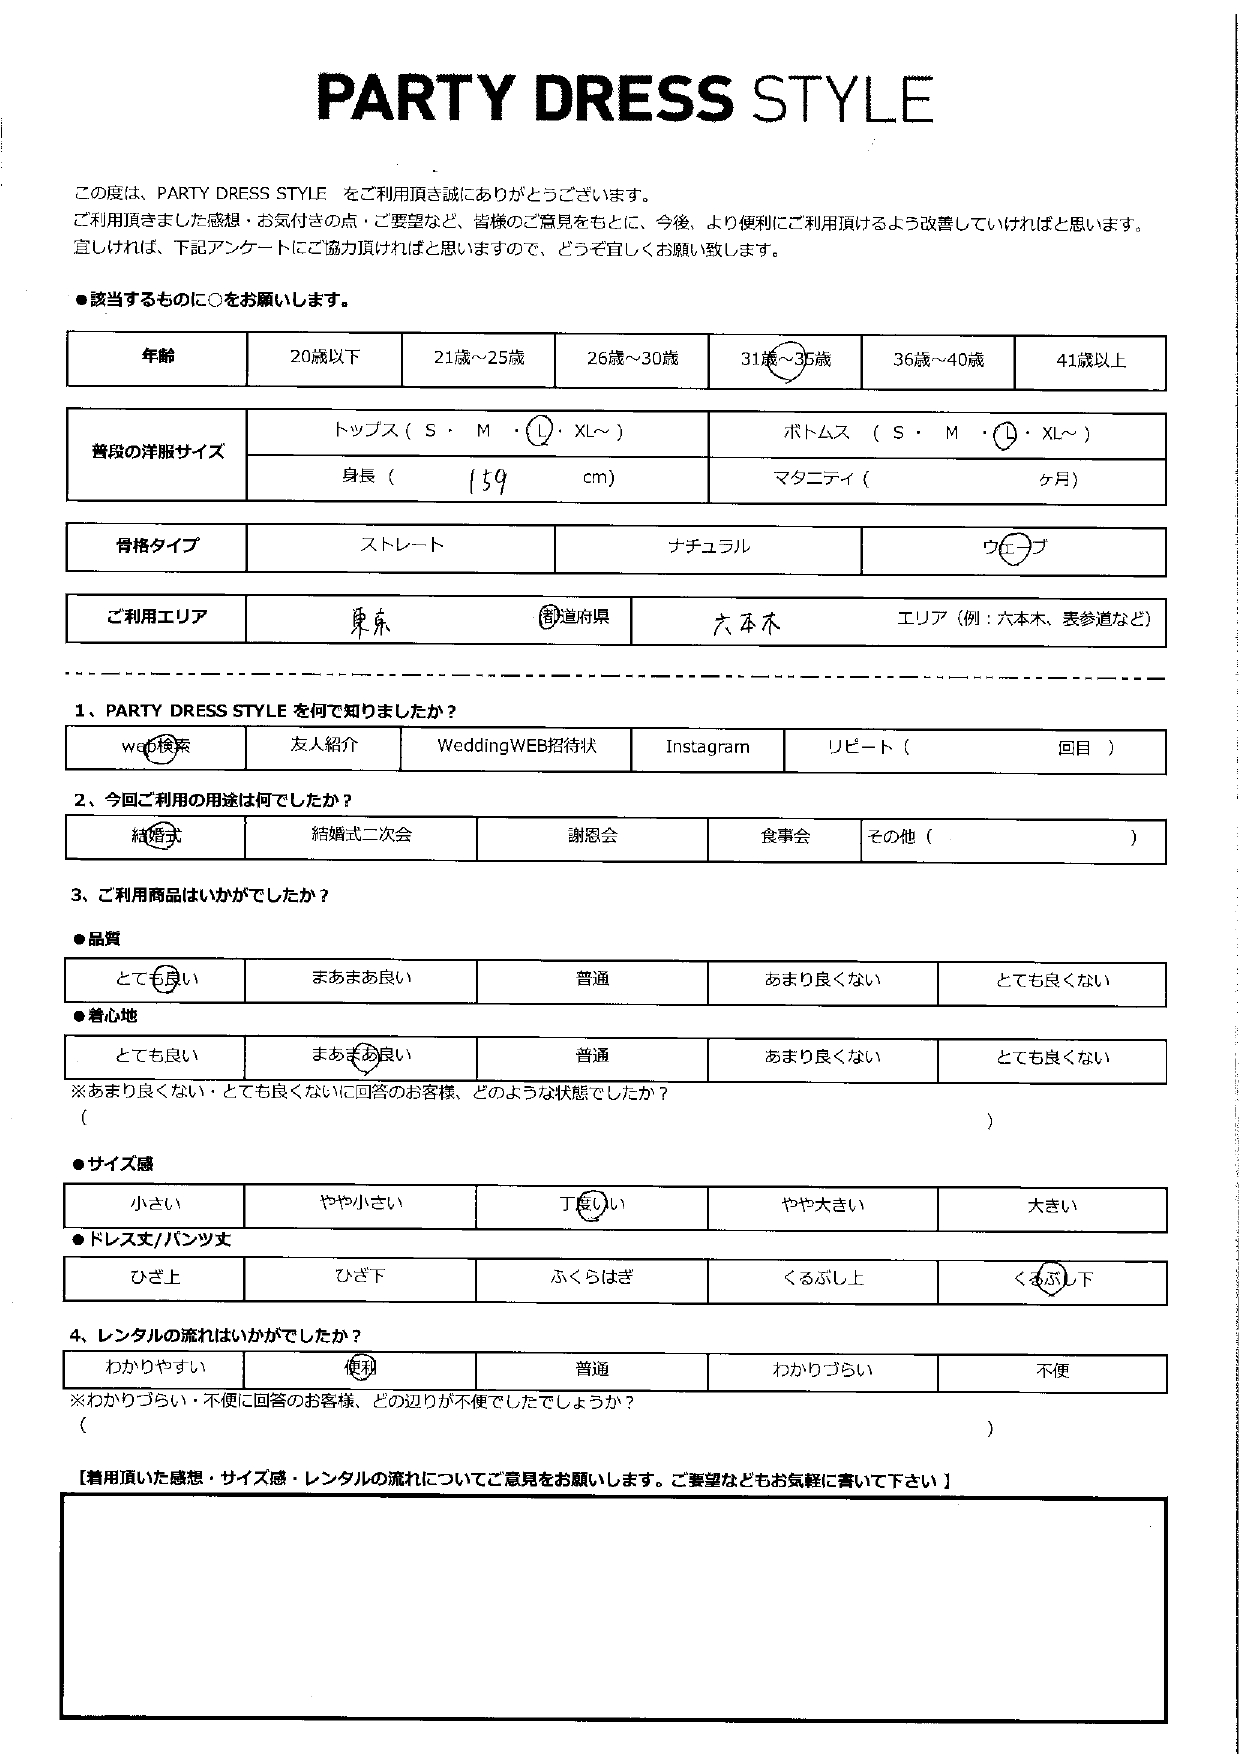 PARTY DRESS STYLE
この度は、PARTY DRESS STYLE をご利用頂き誠にありがとうございます。
ご利用頂きました感想・お気付きの点・ご要望など、皆様のご意見をもとに、今後、より便利にご利用頂けるよう改善していければと思います。
宜しければ、下記アンケートにご協力頂ければと思いますので、どうぞ宜しくお願い致します。
●該当するものに○をお願いします。
年齢 20歳以下 21歳～25歳 26歳～30歳 31歳～35歳 36歳～40歳 41歳以上
普段の洋服サイズ トップス ( S ・ M ・ L ・ XL～ ) ボトムス ( S ・ M ・ L ・ XL～ )
身長 ( 159 cm) マタニティ ( ヶ月)
骨格タイプ ストレート ナチュラル ウェーブ
ご利用エリア 東京 都道府県 六本木 エリア（例：六本木、表参道など）
1、PARTY DRESS STYLE を何で知りましたか？
web検索 友人紹介 WeddingWEB招待状 Instagram リピート ( 回目 )
2、今回ご利用の用途は何でしたか？
結婚式 結婚式二次会 謝恩会 食事会 その他 ( )
3、ご利用商品はいかがでしたか？
●品質
とても良い まあまあ良い 普通 あまり良くない とても良くない
●着心地
とても良い まあまあ良い 普通 あまり良くない とても良くない
※あまり良くない・とても良くないに回答のお客様、どのような状態でしたか？
( )
●サイズ感
小さい やや小さい 丁度いい やや大きい 大きい
●ドレス丈/パンツ丈
ひざ上 ひざ下 ふくらはぎ くるぶし上 くるぶし下
4、レンタルの流れはいかがでしたか？
わかりやすい 便利 普通 わかりづらい 不便
※わかりづらい・不便に回答のお客様、どの辺りが不便でしたでしょうか？
( )
【着用頂いた感想・サイズ感・レンタルの流れについてご意見をお願いします。ご要望などもお気軽に書いて下さい 】